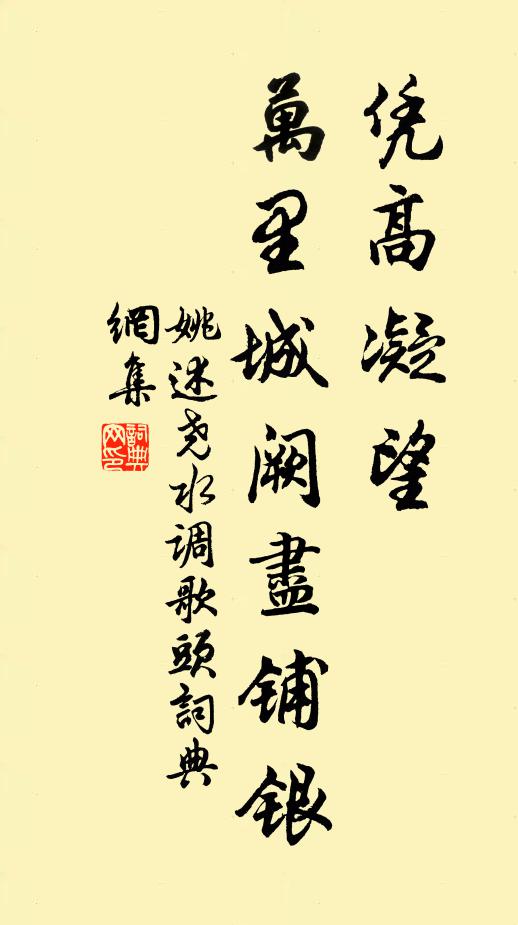 凭高凝望
萬里城阙盡铺银
姚述尧水调歌頭詞典
網集
詞典
网印